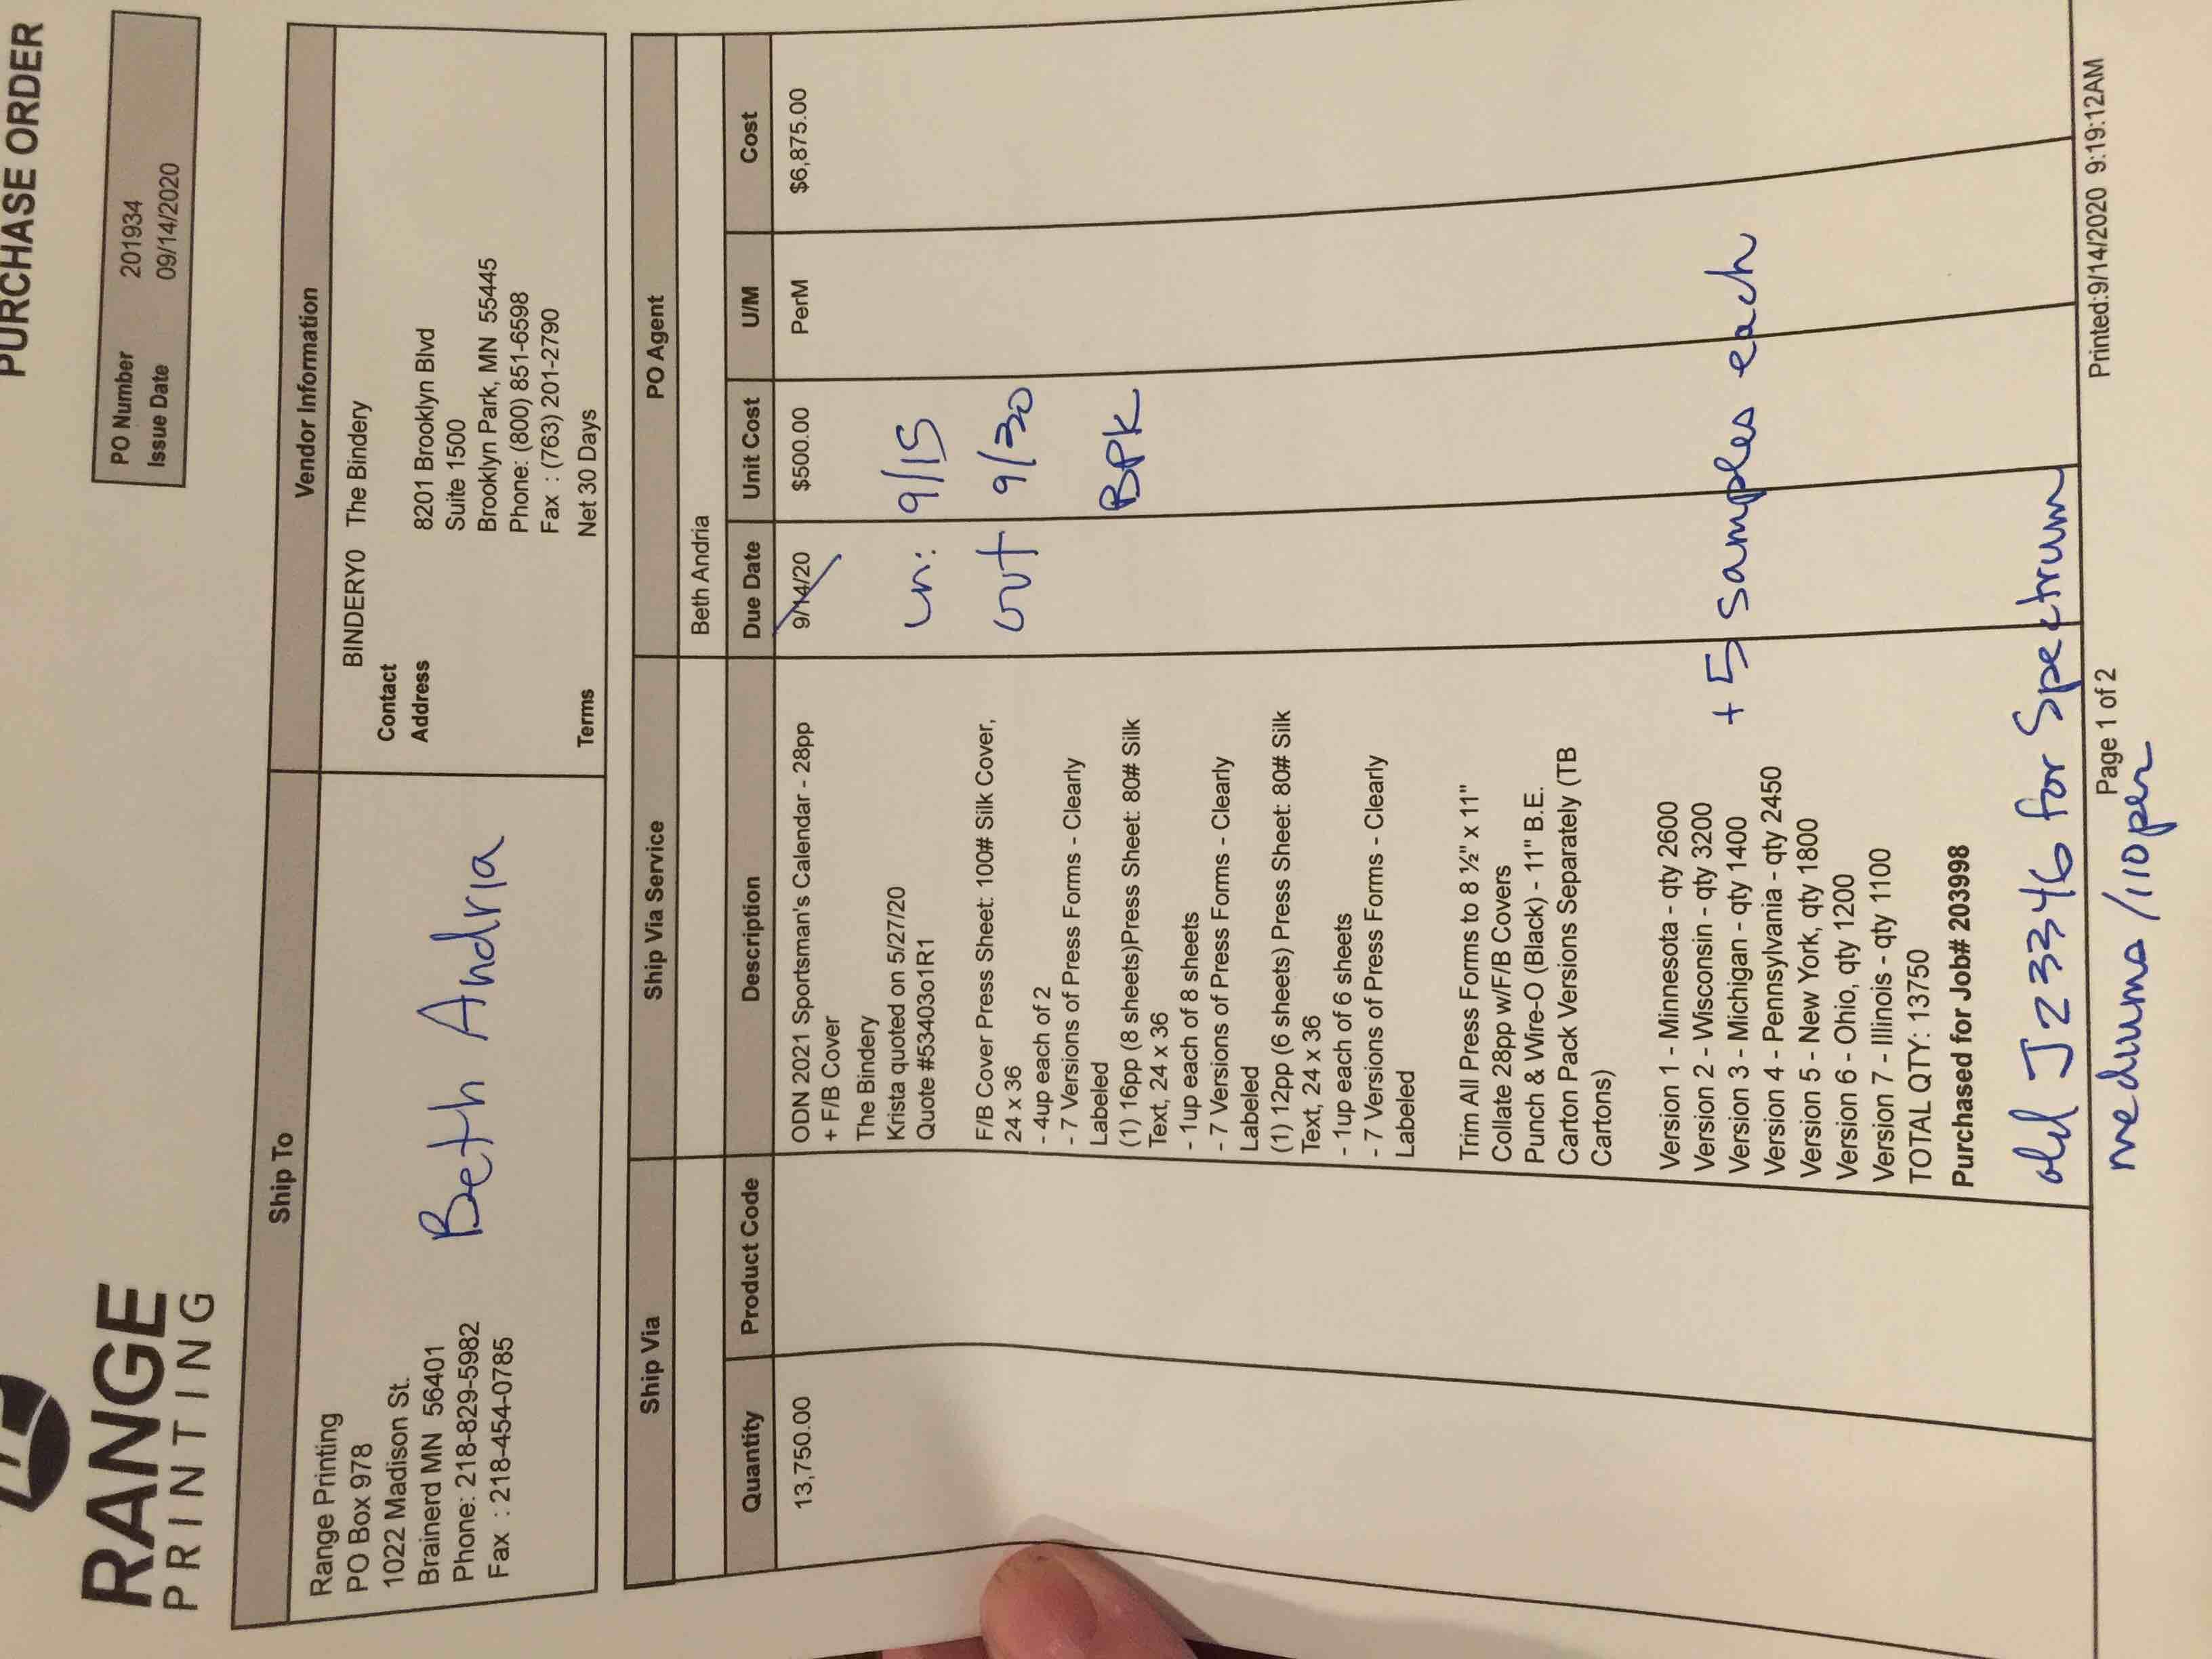 PURCHASE ORDER
RANGE
PRINTING
PO Number 201934
Issue Date 09/14/2020
Ship To
Range Printing
PO Box 978
1022 Madison St.
Brainerd MN 56401
Phone: 218-829-5982
Fax : 218-454-0785
Beth Andria
Vendor Information
BINDERY0 The Bindery
Contact
Address 8201 Brooklyn Blvd
Suite 1500
Brooklyn Park, MN 55445
Phone: (800) 851-6598
Fax : (763) 201-2790
Terms Net 30 Days
Ship Via Ship Via Service PO Agent
Beth Andria
Quantity Product Code Description Due Date Unit Cost U/M Cost
13,750.00 ODN 2021 Sportsman's Calendar - 28pp 9/14/20 $500.00 PerM $6,875.00
+ F/B Cover
The Bindery
Krista quoted on 5/27/20
Quote #53403o1R1
in: 9/15
out 9/30
BPK
F/B Cover Press Sheet: 100# Silk Cover,
24 x 36
- 4up each of 2
- 7 Versions of Press Forms - Clearly
Labeled
(1) 16pp (8 sheets)Press Sheet: 80# Silk
Text, 24 x 36
- 1up each of 8 sheets
- 7 Versions of Press Forms - Clearly
Labeled
(1) 12pp (6 sheets) Press Sheet: 80# Silk
Text, 24 x 36
- 1up each of 6 sheets
- 7 Versions of Press Forms - Clearly
Labeled
Trim All Press Forms to 8 ½" x 11"
Collate 28pp w/F/B Covers
Punch & Wire-O (Black) - 11" B.E.
Carton Pack Versions Separately (TB
Cartons)
Version 1 - Minnesota - qty 2600
Version 2 - Wisconsin - qty 3200
Version 3 - Michigan - qty 1400
Version 4 - Pennsylvania - qty 2450
Version 5 - New York, qty 1800
Version 6 - Ohio, qty 1200
Version 7 - Illinois - qty 1100
+5 samples each
TOTAL QTY: 13750
Purchased for Job# 203998
old J23346 for Spectrum
mediums /110per
Page 1 of 2
Printed:9/14/2020 9:19:12AM